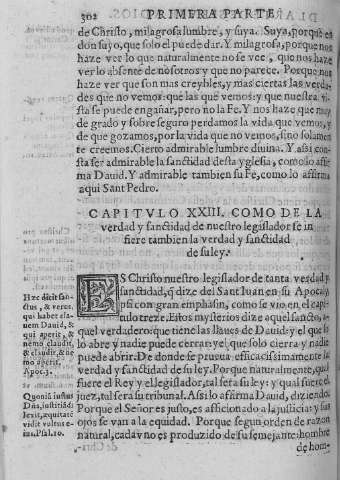 302 PRIMERA PARTE
de Christo, milagrosa lumbre, y suya. Suya, porque en
don suyo, que solo el puede dar. Y milagrosa, porque nos
haze ver lo que naturalmente no se vee, que nos haze
ver lo absente de nosotros y que no parece. Porque nos
haze ver que son mas creybles, y mas ciertas las verda
des que no vemos: que las que vemos: y que nuestra vi
sta se puede engañar, pero no la Fe. Y nos haze que muy
de grado y sobre seguro perdamos la vida que vemos, y
de que gozamos, por la vida que no vemos, sino solamen
te creemos. Cierto admirable lumbre diuina. Y assi con
sta ser admirable la sanctidad desta yglesia, como so affir
ma Dauid. Y admirable tambien su Fe, como lo affirma
aqui Sant Pedro.
CAPITVLO XXIII. COMO DE LA
verdad y sanctidad de nuestro legislador se in
fiere tambien la verdad y sanctidad
de su ley.
ES Christo nuestro legislador de tanta verdad y
sanctidad, q̃ dize del Sant Iuan en su Apoca
lypsi con gran emphasin, como se vio en el cap
itulo treze. Estos mysterios dize aquel sancto, a-
quel verdadero: que tiene las llaues de Dauid: y el que
lo abre y nadie puede cerrar: y el que solo cierra y nadie
puede abrir. De donde se prueua efficacissimamente la
verdad y sanctidad de su ley. Porque naturalmente, qual
fuere el Rey y el legislador, tal sera su ley: y qual fuere el
juez, tal sera su tribunal. Assi lo affirma Dauid, diziendo.
Porque el Señor es justo, es afficionado a la justicia: y sus
ojos se van a la equidad. Porque segun orden de razon
natural, cada vno es produzido de su semejante: hombre
de hom-
Hæc dicit san
ctus, & verus
qui habet cla-
uem Dauid, &
qui aperit, &
nemo claudit,
& claudit, & ne
mo aperit.
Apoc. 3.
Quoniã iustus
Dñs, iustitiã di
lexit, equitatẽ
vidit vultus e-
ius. Psal. 10.